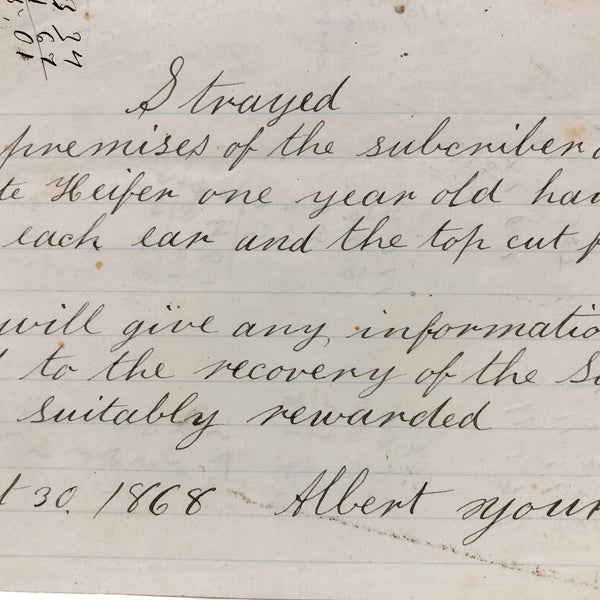 3 34
67
01
Strayed
premises of the subcriber a
te Heifer one year old hav
each ear and the top cut f
will give any informatio
to the recovery of the Sa
suitably rewarded
t 30. 1868 Albert Your